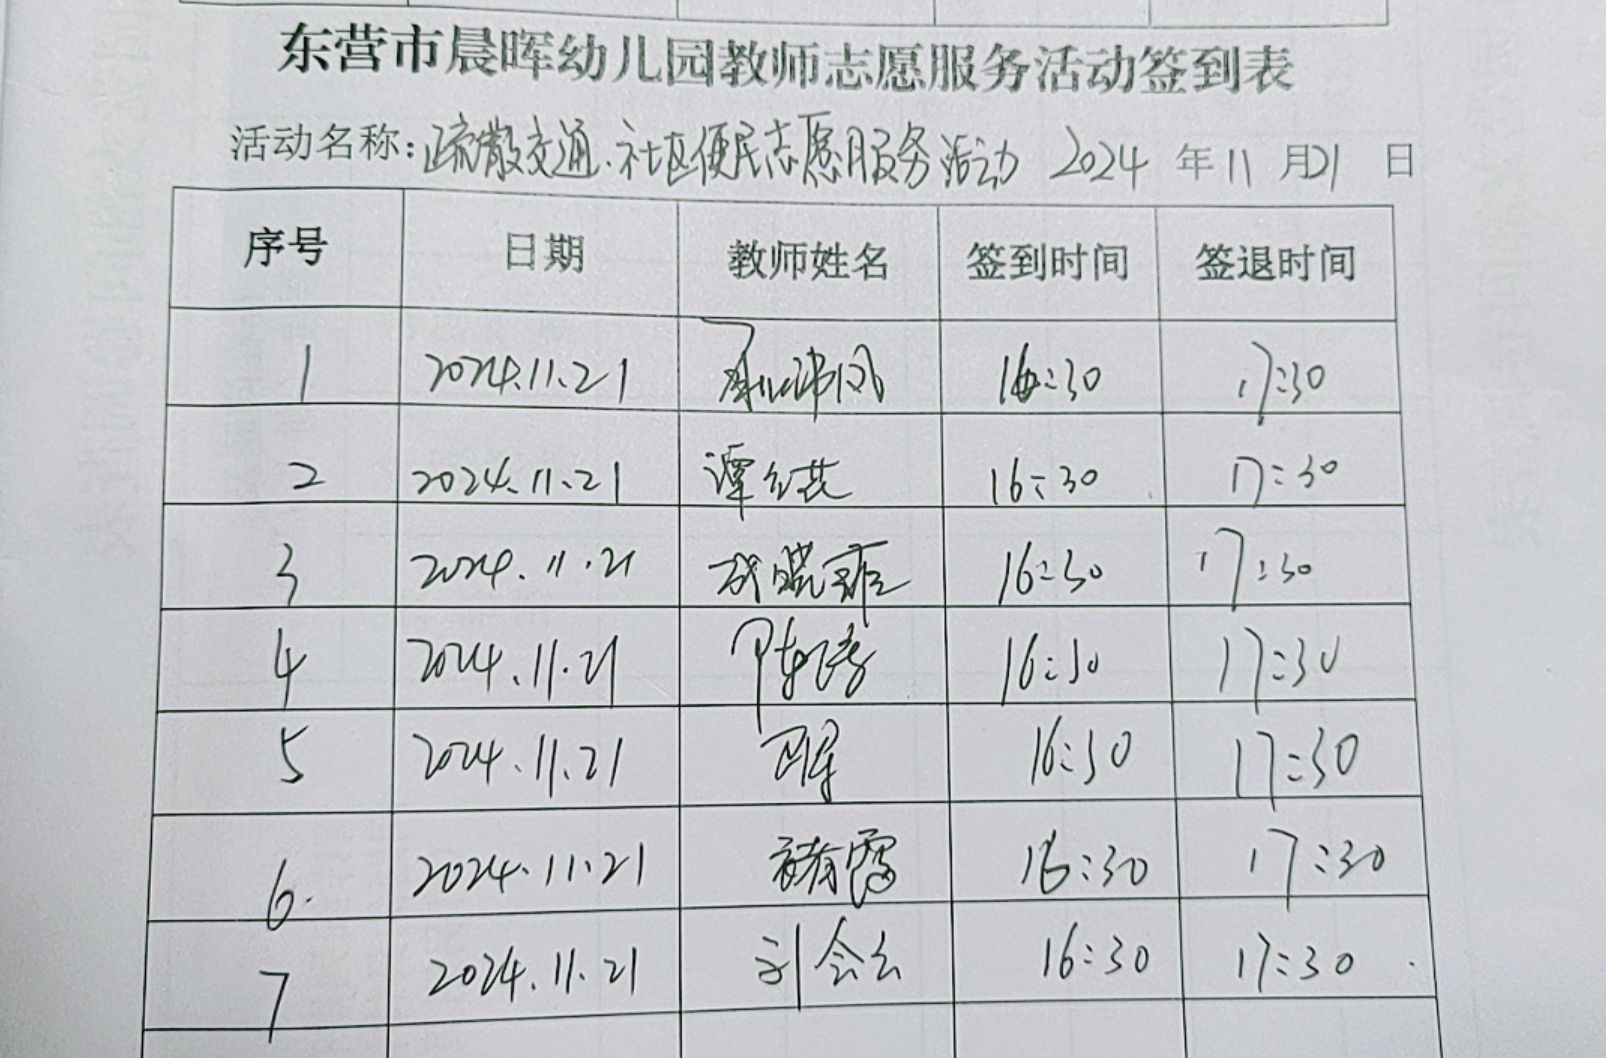 东营市晨晖幼儿园教师志愿服务活动签到表
活动名称:疏散交通、社区便民志愿服务活动 2024 年 11 月 21 日
序号 日期 教师姓名 签到时间 签退时间
1 2024.11.21 16:30 17:30
2 2024.11.21 谭 16:30 17:30
3 2024.11.21 晓 16:30 17:30
4 2024.11.21 陈 16:30 17:30
5 2024.11.21 16:30 17:30
6. 2024.11.21 褚霞 16:30 17:30
7 2024.11.21 刘会云 16:30 17:30